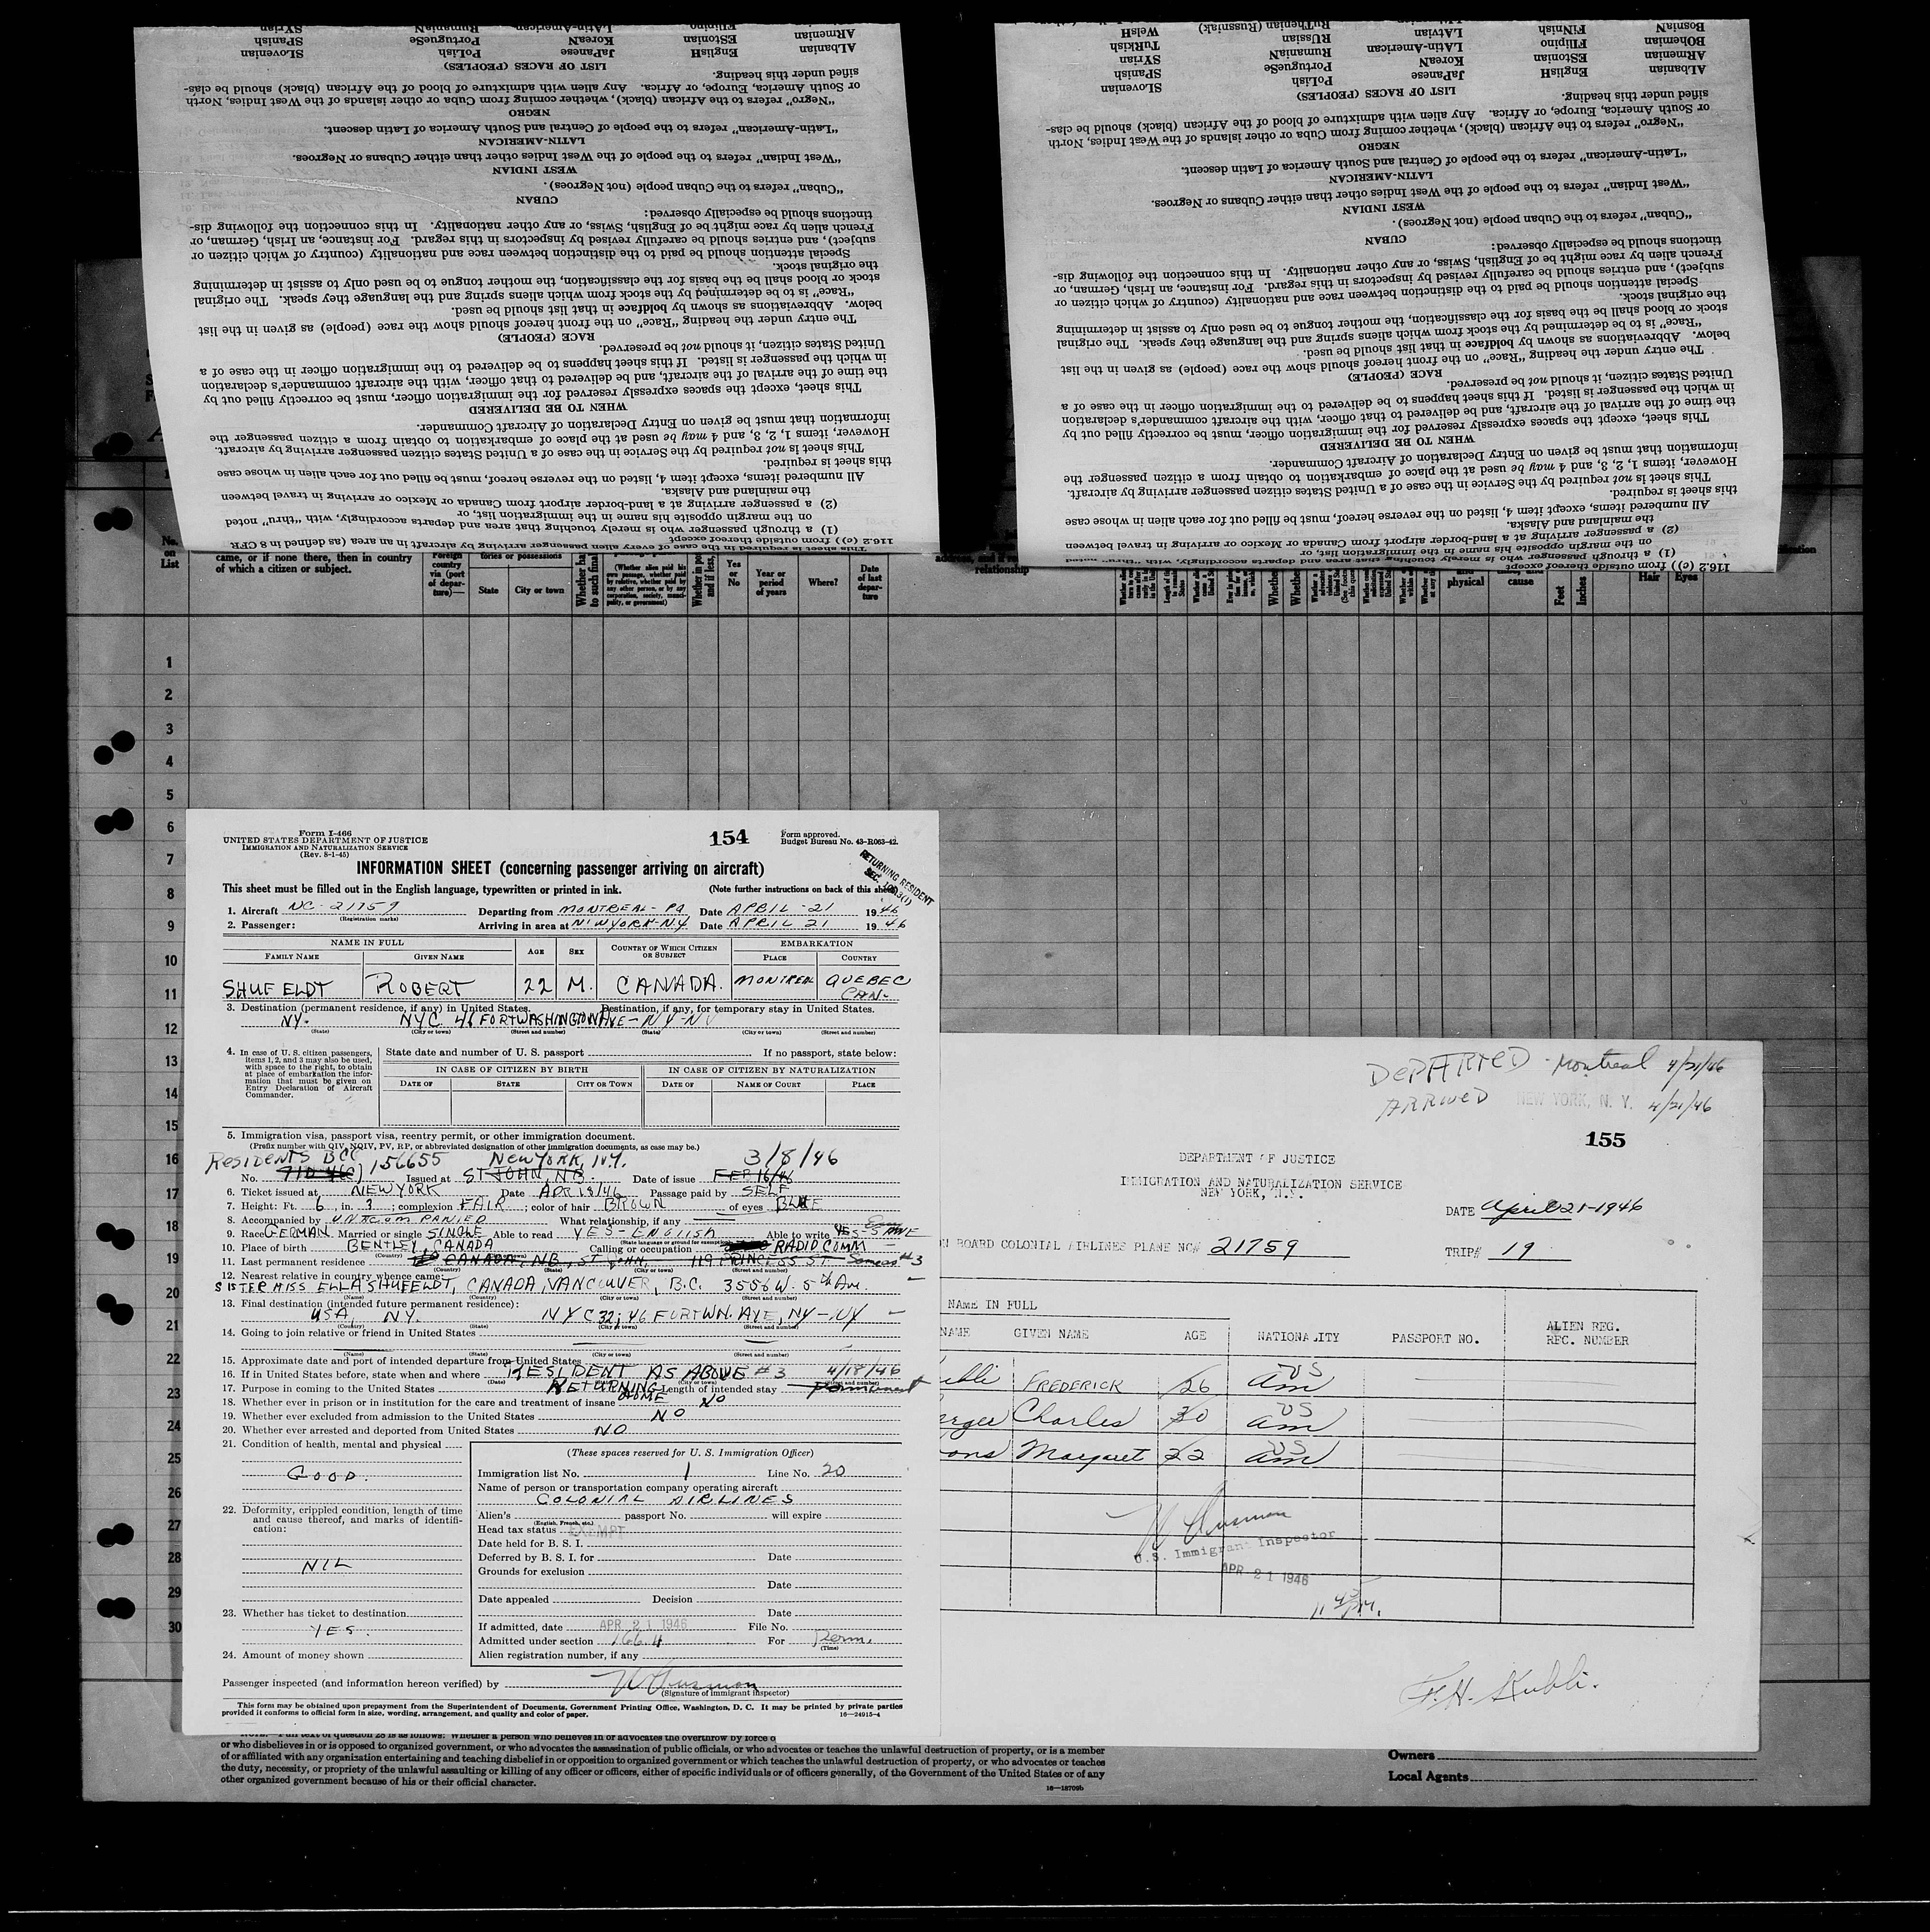 Form I-466
UNITED STATES DEPARTMENT OF JUSTICE
IMMIGRATION AND NATURALIZATION SERVICE
(Rev. 8-1-45)
154
Form approved.
Budget Bureau No. 43-R063-42.
RETURNING RESIDENT
INFORMATION SHEET (concerning passenger arriving on aircraft)
This sheet must be filled out in the English language, typewritten or printed in ink.
(Note further instructions on back of this sheet)
1. Aircraft NC-21759 Departing from MONTREAL-PQ Date APRIL-21 1946
(Registration marks)
2. Passenger: Arriving in area at N.W YORK-N.Y Date APRIL 21 1946
NAME IN FULL AGE SEX COUNTRY OF WHICH CITIZEN OR SUBJECT EMBARKATION
FAMILY NAME GIVEN NAME PLACE COUNTRY
SHUFELDT ROBERT 22 M. CANADA. MONTREAL QUEBEC CAN-
3. Destination (permanent residence, if any) in United States. Destination, if any, for temporary stay in United States.
NY. NYC 46 FORTWASHINGTON AVE-NY-NY
(State) (City or town) (Street and number) (State) (City or town) (Street and number)
4. In case of U. S. citizen passengers, items 1, 2, and 3 may also be used, with space to the right, to obtain at place of embarkation the information that must be given on Entry Declaration of Aircraft Commander.
State date and number of U. S. passport If no passport, state below:
IN CASE OF CITIZEN BY BIRTH IN CASE OF CITIZEN BY NATURALIZATION
DATE OF STATE CITY OR TOWN DATE OF NAME OF COURT PLACE
5. Immigration visa, passport visa, reentry permit, or other immigration document.
(Prefix number with QIV, NQIV, PV, RP, or abbreviated designation of other immigration documents, as case may be.)
RESIDENTS BCC 156655 NEW YORK, N.Y. 3/8/46
No. Issued at ST JOHN, NB. Date of issue FEB 16/46
6. Ticket issued at NEW YORK Date APR 18/46 Passage paid by SELF
7. Height: Ft. 6, in. 3; complexion FAIR; color of hair BROWN of eyes BLUE
8. Accompanied by UNACOMPANIED What relationship, if any
9. Race GERMAN. Married or single SINGLE Able to read YES-ENGLISH Able to write YES-SAME
(State language or ground for exemption)
10. Place of birth BENTLEY, CANADA Calling or occupation RADIO COMM
11. Last permanent residence CANADA, NB, ST JOHN, 119 PRINCESS ST Same as #3
(Country) (State) (City or town) (Street and number)
12. Nearest relative in country whence came:
SISTER MISS ELLA SHUFELDT, CANADA, VANCOUVER, B.C. 3556 W. 5th Ave.
(Name) (Country) (City or town) (Street and number)
13. Final destination (intended future permanent residence):
USA, NY. NYC 32; 46 FORT WN. AVE, NY-NY
(Country) (State) (City or town) (Street and number)
14. Going to join relative or friend in United States
(Name) (State) (City or town) (Street and number)
15. Approximate date and port of intended departure from United States
16. If in United States before, state when and where RESIDENT AS ABOVE #3 4/18/46
(Date) (State) (City or town) (Street and number)
17. Purpose in coming to the United States RETURNING HOME Length of intended stay permanent
18. Whether ever in prison or in institution for the care and treatment of insane NO
19. Whether ever excluded from admission to the United States NO
20. Whether ever arrested and deported from United States NO
21. Condition of health, mental and physical
GOOD.
22. Deformity, crippled condition, length of time and cause thereof, and marks of identification:
NIL
23. Whether has ticket to destination
YES.
24. Amount of money shown
(These spaces reserved for U. S. Immigration Officer)
Immigration list No. 1 Line No. 20
Name of person or transportation company operating aircraft
COLONIAL AIRLINES
Alien's passport No. will expire
(English, French, etc.)
Head tax status EXEMPT
Date held for B. S. I.
Deferred by B. S. I. for Date
Grounds for exclusion
Date
Date appealed Decision
Date
If admitted, date APR 21 1946 File No.
Admitted under section 166.4 For Perm.
(Time)
Alien registration number, if any
Passenger inspected (and information hereon verified) by
(Signature of immigrant inspector)
This form may be obtained upon prepayment from the Superintendent of Documents, Government Printing Office, Washington, D. C. It may be printed by private parties
provided it conforms to official form in size, wording, arrangement, and quality and color of paper.
16-24915-4
DEPARTED - Montreal 4/21/46
ARRIVED NEW YORK, N. Y. 4/21/46
155
DEPARTMENT OF JUSTICE
IMMIGRATION AND NATURALIZATION SERVICE
NEW YORK, N.Y.
DATE April 21-1946
ON BOARD COLONIAL AIRLINES PLANE NC# 21759 TRIP# 19
NAME IN FULL
NAME GIVEN NAME AGE NATIONALITY PASSPORT NO. ALIEN REG. REC. NUMBER
FREDERICK 26 US am
Charles 30 US am
Margaret 22 US am
U.S. Immigrant Inspector
APR 21 1946
F.H. Kubli.
116.2 (c)) from outside thereof except
(1) a through passenger who is merely touching that area and departs accordingly, with "thru" noted
on the margin opposite his name in the immigration list, or
(2) a passenger arriving at a land-border airport from Canada or Mexico or arriving in travel between
the mainland and Alaska.
All numbered items, except item 4, listed on the reverse hereof, must be filled out for each alien in whose case
this sheet is required.
This sheet is not required by the Service in the case of a United States citizen passenger arriving by aircraft.
However, items 1, 2, 3, and 4 may be used at the place of embarkation to obtain from a citizen passenger the
information that must be given on Entry Declaration of Aircraft Commander.
WHEN TO BE DELIVERED
This sheet, except the spaces expressly reserved for the immigration officer, must be correctly filled out by
the time of the arrival of the aircraft, and be delivered to that officer, with the aircraft commander's declaration
in which the passenger is listed. If this sheet happens to be delivered to the immigration officer in the case of a
United States citizen, it should not be preserved.
RACE (PEOPLE)
The entry under the heading "Race" on the front hereof should show the race (people) as given in the list
below. Abbreviations as shown by boldface in that list should be used.
"Race" is to be determined by the stock from which aliens spring and the language they speak. The original
stock or blood shall be the basis for the classification, the mother tongue to be used only to assist in determining
the original stock.
Special attention should be paid to the distinction between race and nationality (country of which citizen or
subject), and entries should be carefully revised by inspectors in this regard. For instance, an Irish, German, or
French alien by race might be of English, Swiss, or any other nationality. In this connection the following distinctions should be especially observed:
CUBAN
"Cuban" refers to the Cuban people (not Negroes).
WEST INDIAN
"West Indian" refers to the people of the West Indies other than either Cubans or Negroes.
LATIN-AMERICAN
"Latin-American" refers to the people of Central and South America of Latin descent.
NEGRO
"Negro" refers to the African (black), whether coming from Cuba or other islands of the West Indies, North
or South America, Europe, or Africa. Any alien with admixture of blood of the African (black) should be classified under this heading.
LIST OF RACES (PEOPLES)
ALbanian ENglisH JaPanese PoLish SLOVenian
ARMenian EStonian KoreaN PortuGuese SPanish
BOHemian FIlipino LAtin-American RumaniaN SYrian
BosniaN FiNnish LAtvian RUssian TuRkish
RuThenian (Russniak) WelsH
No. on List
came, or if none there, then in country
of which a citizen or subject.
State City or town Yes or No Year or period of years Where? Date of last departure
relationship physical cause Feet Inches Hair Eyes
1
2
3
4
5
6
7
8
9
10
11
12
13
14
15
16
17
18
19
20
21
22
23
24
25
26
27
28
29
30
or who disbelieves in or is opposed to organized government, or who advocates the assassination of public officials, or who advocates or teaches the unlawful destruction of property, or is a member
of or affiliated with any organization entertaining and teaching disbelief in or opposition to organized government or which teaches the unlawful destruction of property, or who advocates or teaches
the duty, necessity, or propriety of the unlawful assaulting or killing of any officer or officers, either of specific individuals or of officers generally, of the Government of the United States or of any
other organized government because of his or their official character.
16-18709b
Owners
Local Agents